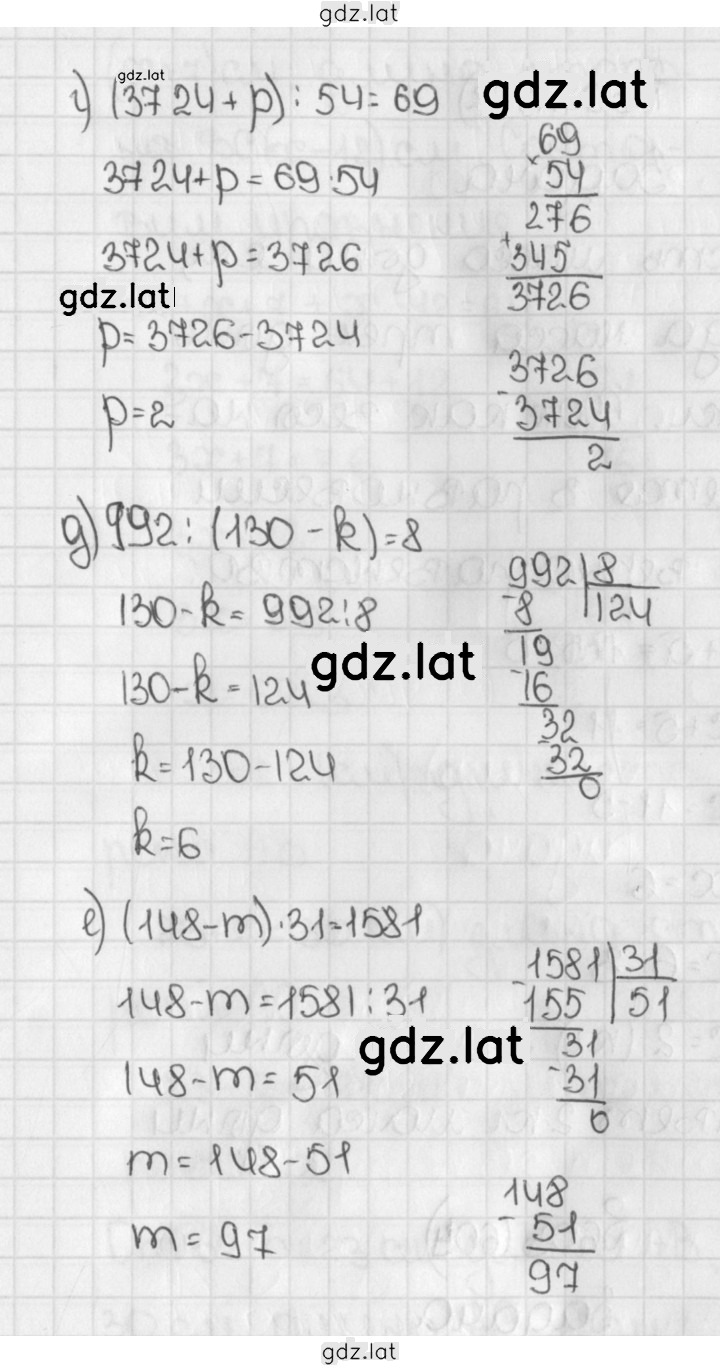 gdz.lat
gdz.lat
г) (3724 + p) : 54 = 69
gdz.lat
3724 + p = 69 · 54
3724 + p = 3726
gdz.lat
p = 3726 - 3724
p = 2
69
× 54
276
+ 345
3726
3726
- 3724
2
д) 992 : (130 - k) = 8
130 - k = 992 : 8
gdz.lat
130 - k = 124
k = 130 - 124
k = 6
992 | 8
- 8 | 124
19
- 16
32
- 32
0
е) (148 - m) · 31 = 1581
148 - m = 1581 : 31
gdz.lat
148 - m = 51
m = 148 - 51
m = 97
1581 | 31
- 155 | 51
31
- 31
0
148
- 51
97
gdz.lat